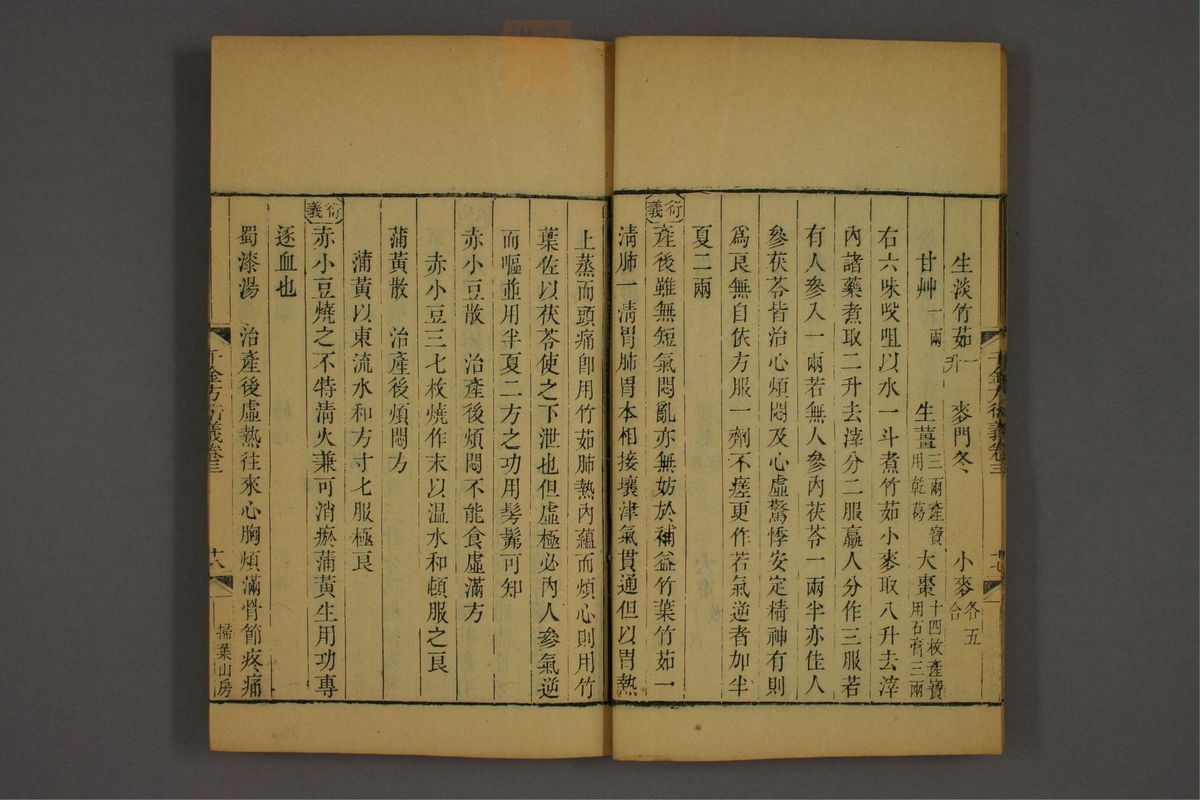 生淡竹茹一升 麥門冬 小麥各五合
甘艸一兩 生薑三兩產寶用乾葛 大棗十四枚產寶用石膏三兩
右六味㕮咀以水一斗煮竹茹小麥取八升去滓
內諸藥煮取二升去滓分二服羸人分作三服若
有人參入一兩若無人參內茯苓一兩半亦佳人
參茯苓皆治心煩悶及心虛驚悸安定精神有則
爲良無自依方服一劑不瘥更作若氣逆者加半
夏二兩
衍義
產後雖無短氣悶亂亦無妨於補益竹葉竹茹一
淸肺一淸胃肺胃本相接壤津氣貫通但以胃熱
千金方衍義卷三
十七
上蒸而頭痛卽用竹茹肺熱內蘊而煩心則用竹
葉佐以茯苓使之下泄也但虛極必內人參氣逆
而嘔並用半夏二方之功用髣髴可知
赤小豆散 治產後煩悶不能食虛滿方
赤小豆三七枚燒作末以温水和頓服之良
蒲黃散 治產後煩悶方
蒲黃以東流水和方寸匕服極良
衍義
赤小豆燒之不特淸火兼可消瘀蒲黃生用功專
逐血也
蜀漆湯 治產後虛熱往來心胸煩滿骨節疼痛
千金方衍義卷三
十八
掃葉山房